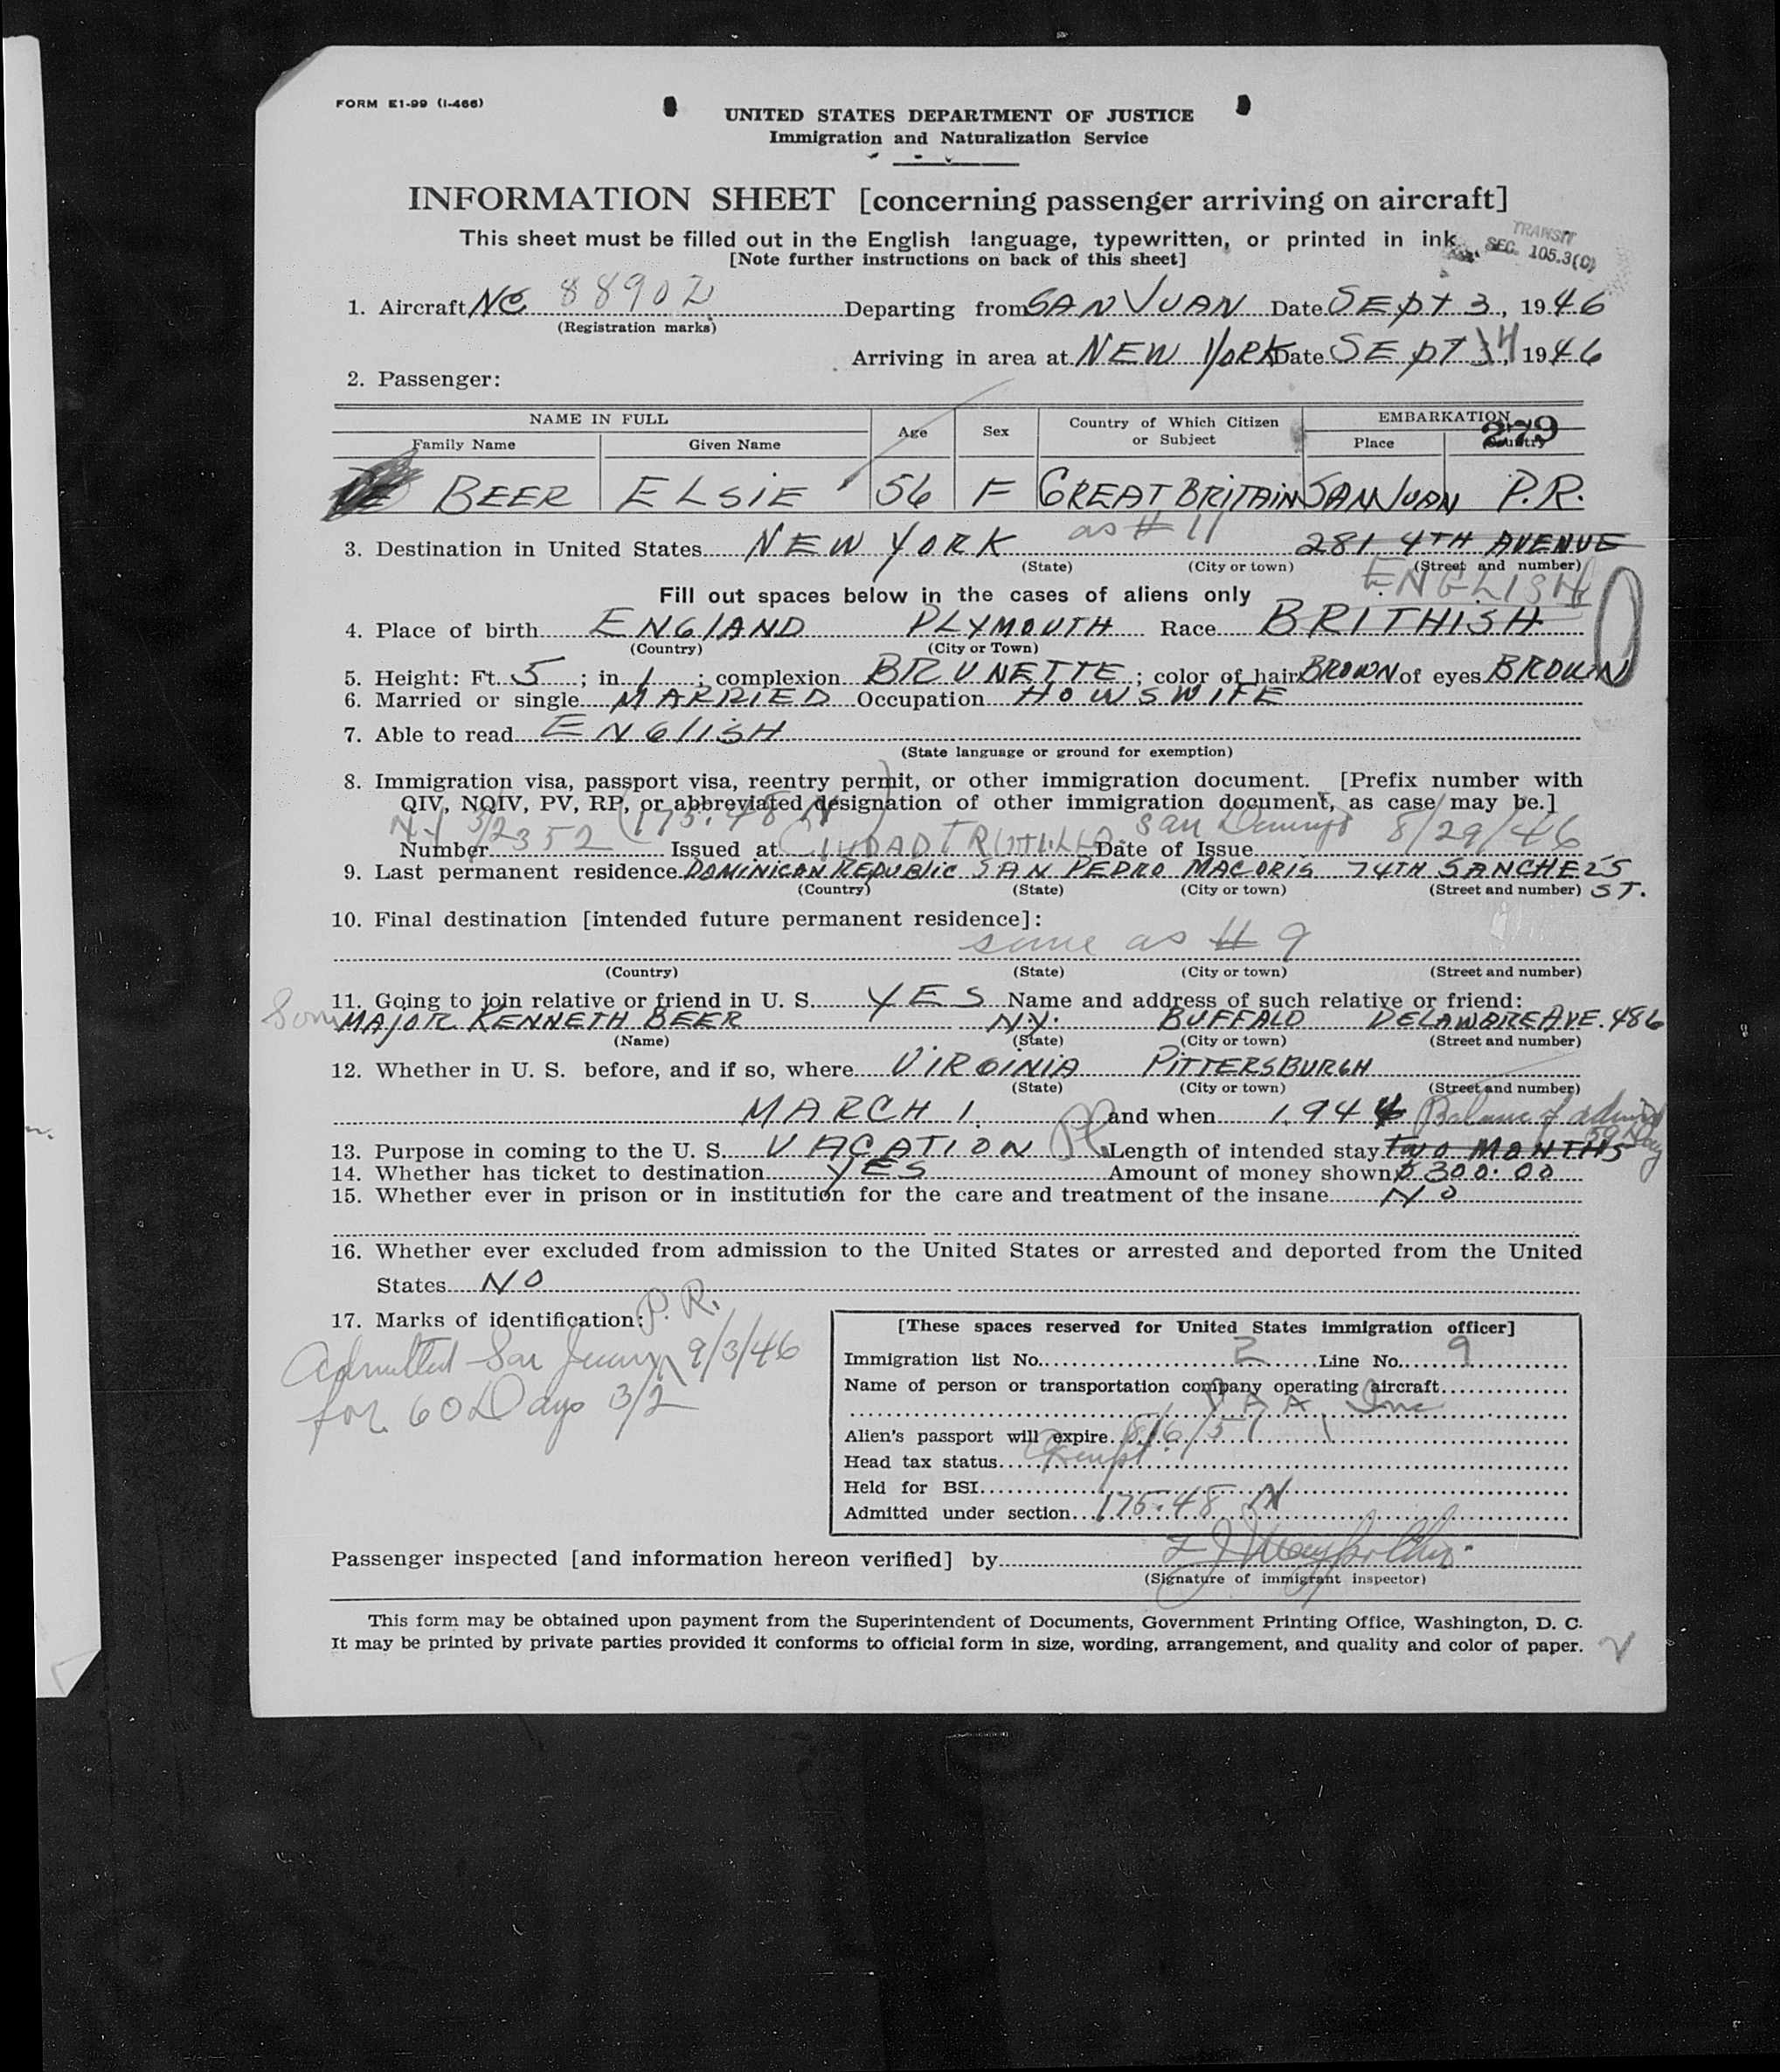 FORM E1-99 (I-466)
UNITED STATES DEPARTMENT OF JUSTICE
Immigration and Naturalization Service
INFORMATION SHEET [concerning passenger arriving on aircraft]
This sheet must be filled out in the English language, typewritten, or printed in ink.
[Note further instructions on back of this sheet]
TRANSIT
SEC. 105.3(C)
1. Aircraft NC 88902 Departing from SAN JUAN Date SEPT 3, 1946
(Registration marks)
Arriving in area at NEW YORK Date SEPT 4, 1946
2. Passenger:
NAME IN FULL Age Sex Country of Which Citizen or Subject EMBARKATION
279
Family Name Given Name Place Country
BEER ELSIE 56 F GREAT BRITAIN SAN JUAN P.R.
as # 11
3. Destination in United States NEW YORK 281 4TH AVENUE
(State) (City or town) (Street and number)
Fill out spaces below in the cases of aliens only ENGLISH
4. Place of birth ENGLAND PLYMOUTH Race BRITHISH
(Country) (City or Town)
5. Height: Ft. 5; in 1; complexion BRUNETTE; color of hair BROWN of eyes BROWN
6. Married or single MARRIED Occupation HOWSWIFE
7. Able to read ENGLISH
(State language or ground for exemption)
8. Immigration visa, passport visa, reentry permit, or other immigration document. [Prefix number with
QIV, NQIV, PV, RP, or abbreviated designation of other immigration document, as case may be.]
3/2352 (175.48 N)
Number Issued at CIUDAD TRUJILLO San Domingo Date of Issue 8/29/46
9. Last permanent residence DOMINICAN REPUBLIC SAN PEDRO MACORIS 74TH SANCHEZS ST.
(Country) (State) (City or town) (Street and number)
10. Final destination [intended future permanent residence]:
same as # 9
(Country) (State) (City or town) (Street and number)
11. Going to join relative or friend in U. S. YES Name and address of such relative or friend:
Son MAJOR KENNETH BEER N.Y. BUFFALO DELAWARE AVE. 486
(Name) (State) (City or town) (Street and number)
12. Whether in U. S. before, and if so, where VIRGINIA PITTERSBURGH
(State) (City or town) (Street and number)
MARCH 1. and when 1944 Balance of
13. Purpose in coming to the U. S. VACATION Length of intended stay TWO MONTHS
14. Whether has ticket to destination YES Amount of money shown $ 300.00
15. Whether ever in prison or in institution for the care and treatment of the insane NO
16. Whether ever excluded from admission to the United States or arrested and deported from the United
States NO
17. Marks of identification:
P. R.
Admitted San Juan 9/3/46
for 60 Days 3/2
[These spaces reserved for United States immigration officer]
Immigration list No. 2 Line No. 9
Name of person or transportation company operating aircraft
P A A Inc
Alien's passport will expire 8/6/51
Head tax status Exempt
Held for BSI
Admitted under section 175.48 N
Passenger inspected [and information hereon verified] by
(Signature of immigrant inspector)
This form may be obtained upon payment from the Superintendent of Documents, Government Printing Office, Washington, D. C.
It may be printed by private parties provided it conforms to official form in size, wording, arrangement, and quality and color of paper.